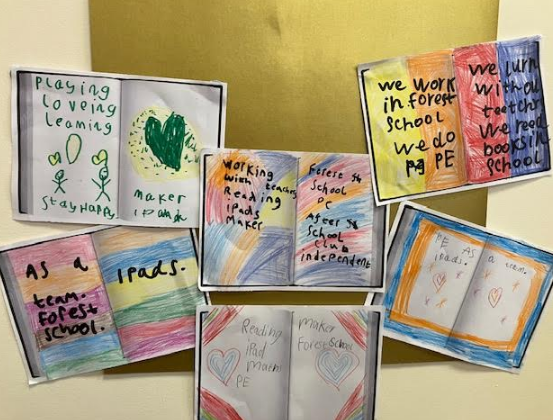 Playing
loveing
learning
stay Happy
maker
we work
in forest
school
we do
PE
we lurn
with ou
teetchr
we read
books in
school
Working
with teachers
Reading
ipads
Maker
Forest
School
PC
After
School
Club
independent
As a
team.
forest
school.
ipads.
PE AS
ipads.
a team.
Reading
ipad
PE
maker
Forest School